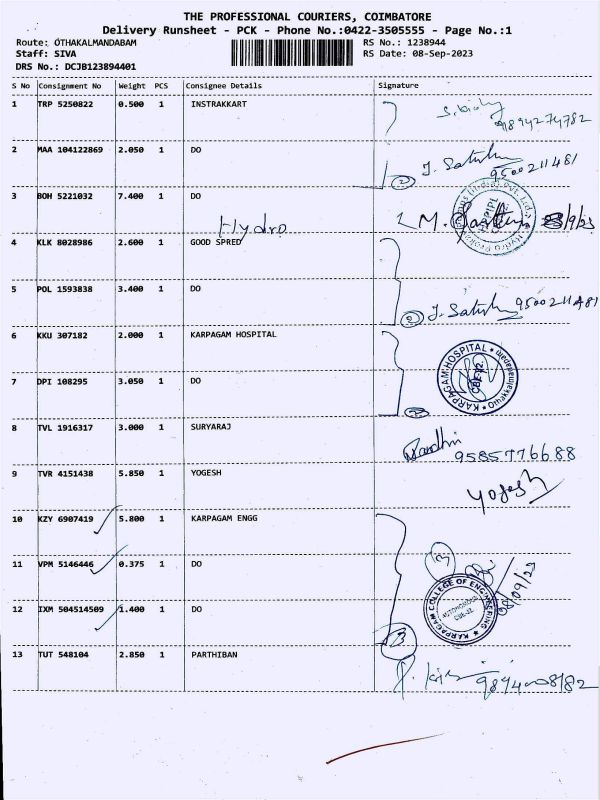 THE PROFESSIONAL COURIERS, COIMBATORE
Delivery Runsheet - PCK - Phone No.:0422-3505555 - Page No.:1
Route: OTHAKALMANDABAM RS No.: 1238944
Staff: SIVA RS Date: 08-Sep-2023
DRS No.: DCJB123894401
S No Consignment No Weight PCS Consignee Details Signature
1 TRP 5250822 0.500 1 INSTRAKKART
9894274782
2 MAA 104122869 2.050 1 DO
J. Satish 9500211481
2
3 BOH 5221032 7.400 1 DO
Hydro
M. 8/9/23
4 KLK 8028986 2.600 1 GOOD SPRED
5 POL 1593838 3.400 1 DO
2 J. Satish 9500211481
6 KKU 307182 2.000 1 KARPAGAM HOSPITAL
KARPAGAM HOSPITAL
CBE-32
7 DPI 108295 3.050 1 DO
8 TVL 1916317 3.000 1 SURYARAJ
9585776688
9 TVR 4151438 5.850 1 YOGESH
Yogesh
10 KZY 6907419 5.800 1 KARPAGAM ENGG
11 VPM 5146446 0.375 1 DO
3
08/09/23
KARPAGAM COLLEGE OF ENGINEERING
AUTONOMOUS
CBE-32
12 IXM 504514509 1.400 1 DO
3
13 TUT 548104 2.850 1 PARTHIBAN